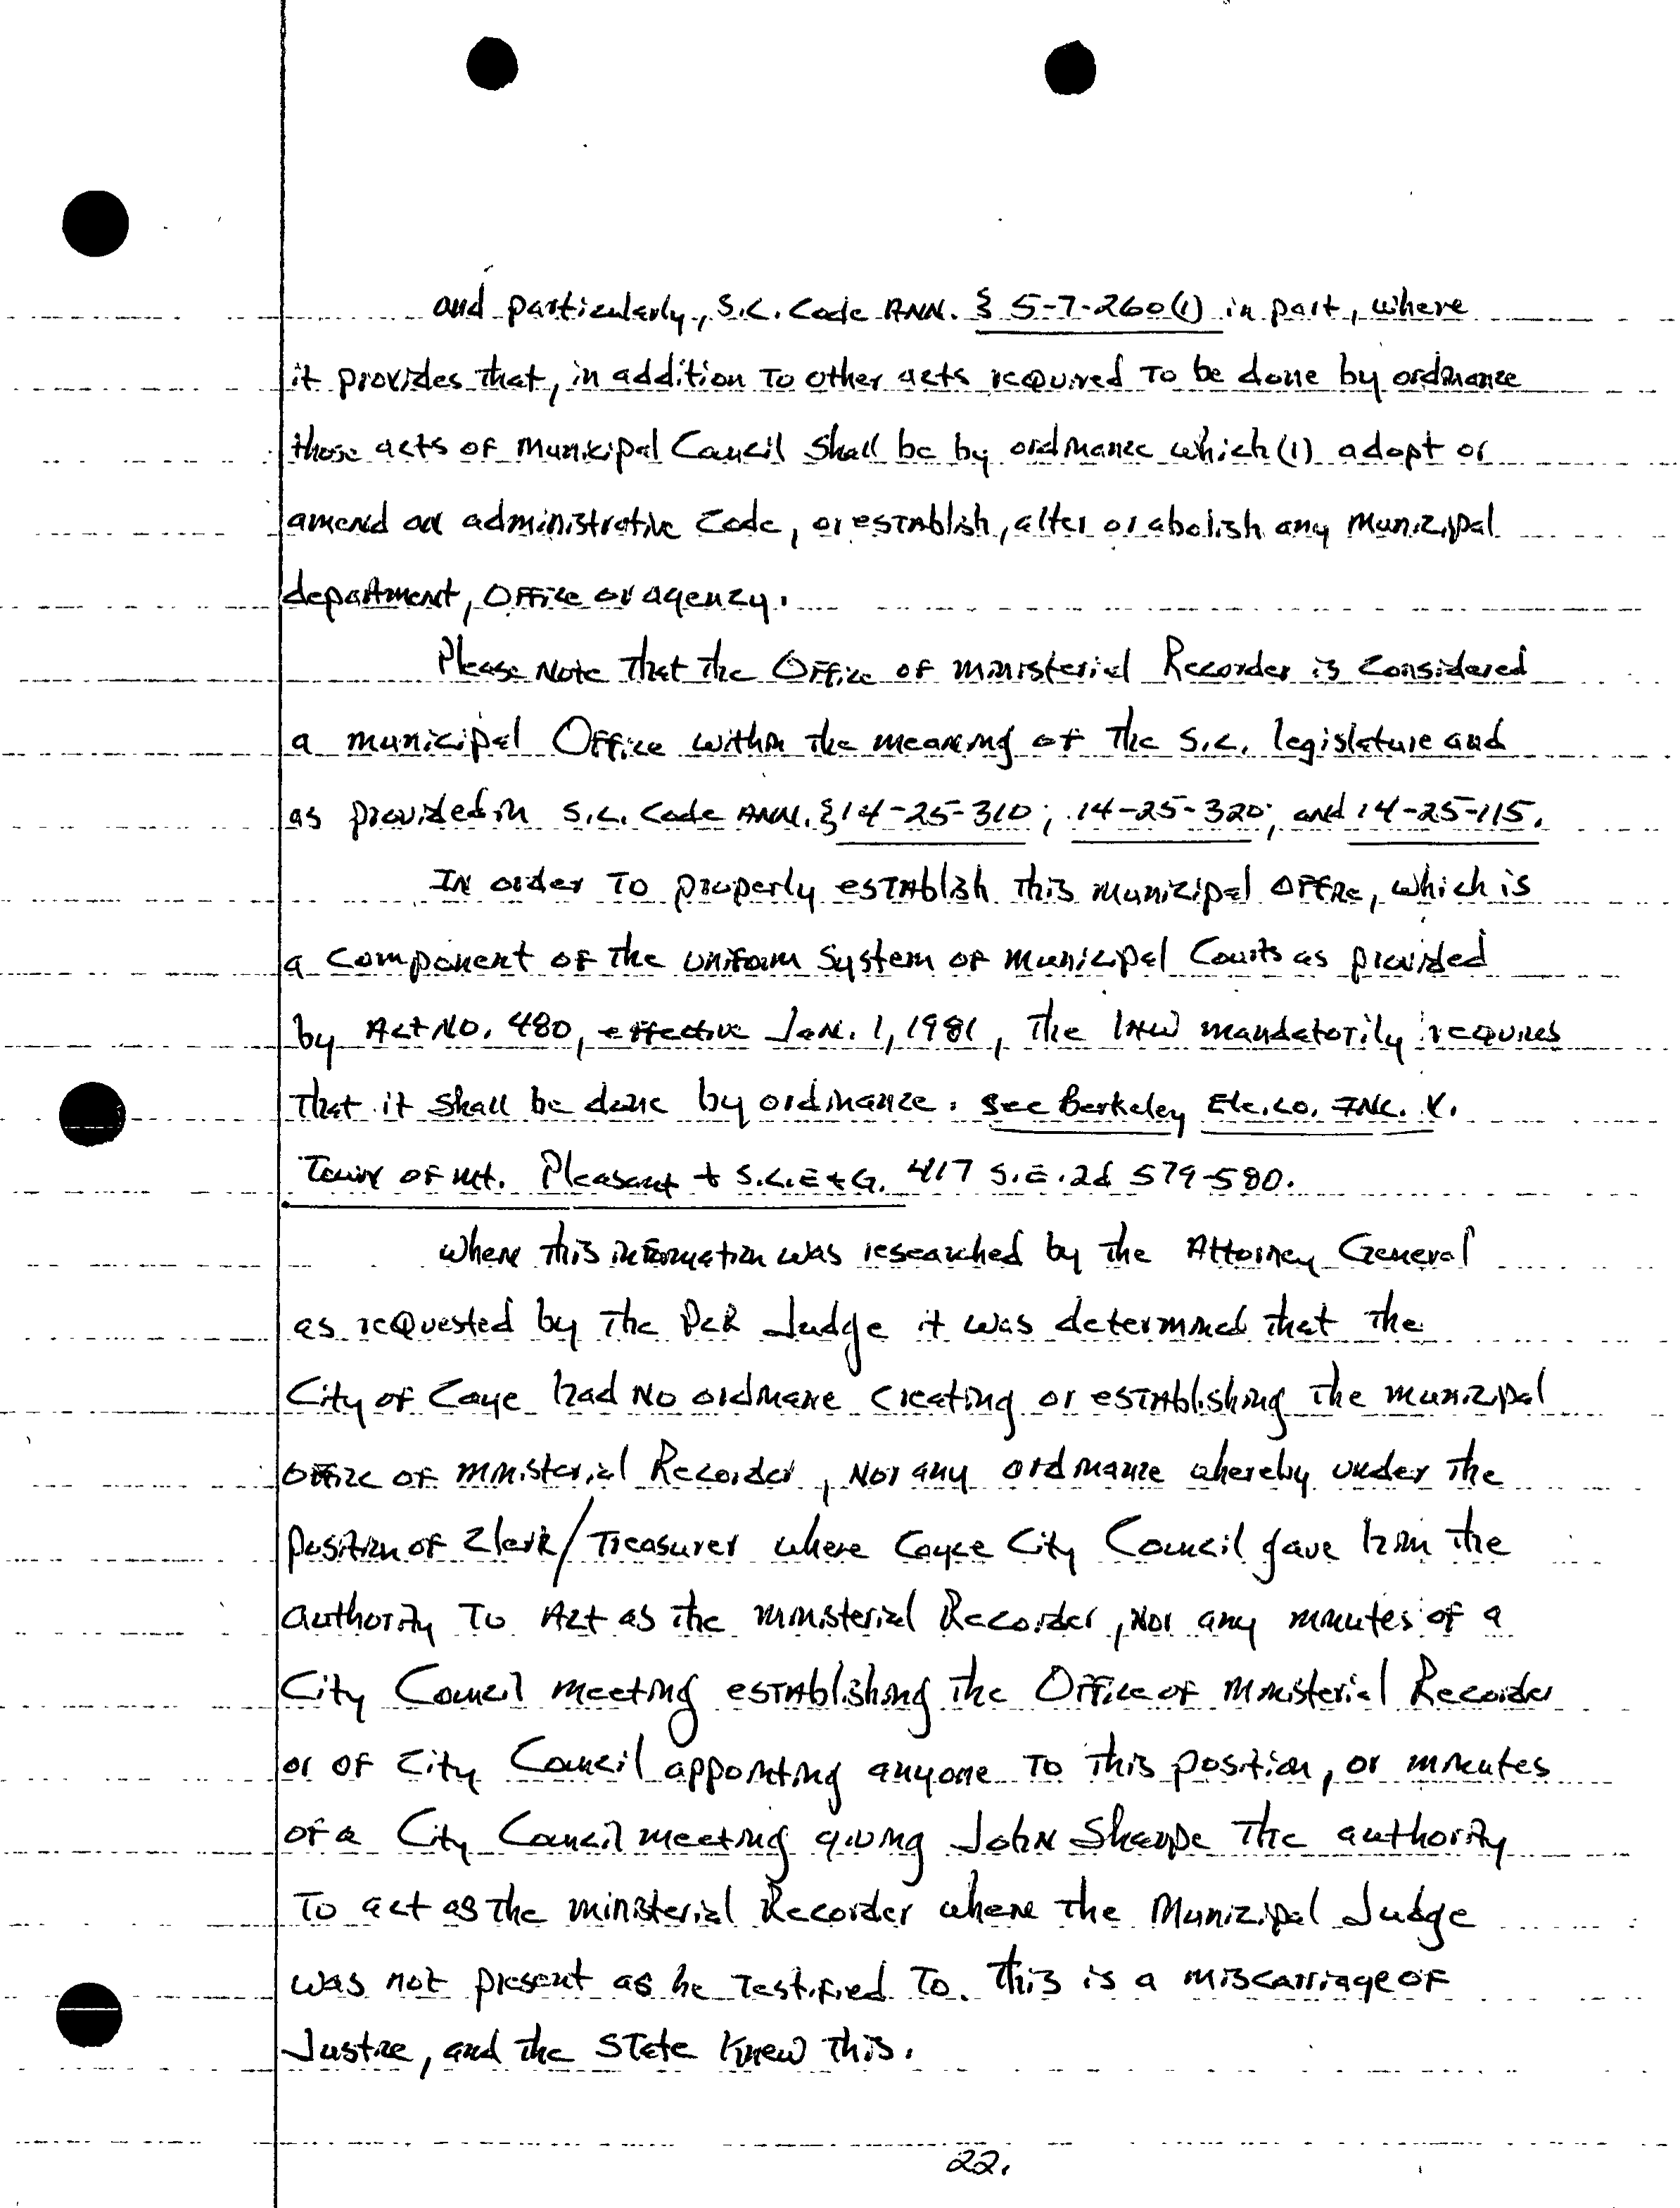 and particularly, S.C. Code ANN. § 5-7-260(1) in part, where
it provides that, in addition To other acts required To be done by ordinance
those acts of Municipal Council shall be by ordinance which (1) adopt or
amend an administrative Code, or establish, alter or abolish any Municipal
department, Office or agency.
Please Note That the Office of ministerial Recorder is Considered
a municipal Office within the meaning of The S.C. legislature and
as provided in S.C. Code ANN. § 14-25-310; 14-25-320; and 14-25-115.
IN order To properly establish this municipal office, which is
a Component of the uniform System of municipal Courts as provided
by Act No. 480, effective Jan. 1, 1981, The law mandatorily requires
That it shall be done by ordinance. See Berkeley Ele.Co. INC. V.
Town of Mt. Pleasant + S.C.E+G. 417 S.E.2d 579-580.
Where this information was researched by the Attorney General
as requested by The PCR Judge it was determined that the
City of Cayce had No ordinance creating or establishing the municipal
office of ministerial Recorder, Nor any ordinance whereby under the
position of Clerk/Treasurer where Cayce City Council gave him the
authority To Act as the ministerial Recorder, Nor any minutes of a
City Council meeting establishing the Office of Ministerial Recorder
or of City Council appointing anyone To this position, or minutes
of a City Council meeting giving John Sharpe The authority
To act as the ministerial Recorder where the Municipal Judge
was not present as he Testified To. This is a miscarriage of
Justice, and the State Knew this.
22.